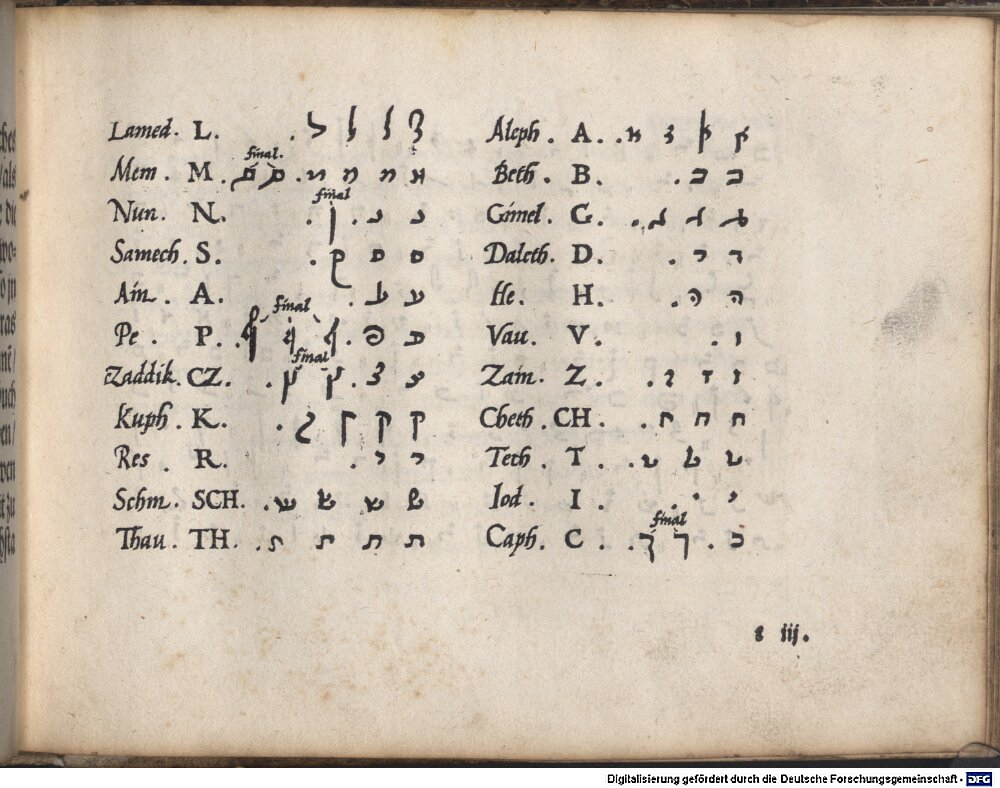 Aleph . A . . א א א א
Beth . B . . ב ב
Gimel . G . . ג ג ג
Daleth . D . . ד ד
He . H . . ה ה
Vau . V . . ו
Zain . Z . . ז ז ז
Cheth . CH . . ח ח ח
Teth . T . . ט ט ט
Iod . I . . י י
final
Caph . C . . ך ך . כ
Lamed . L . . ל ל ל ל
final.
Mem . M . ם ם . מ מ מ מ
final
Nun . N . . ן . נ נ
Samech . S . . ס ס ס
Ain . A . . ע ע
final
Pe . P . . ף ף ף . פ פ
final
Zaddik . CZ . . ץ ץ . צ צ
Kuph . K . . ק ק ק ק
Res . R . . ר ר
Schin . SCH . . ש ש ש ש
Thau . TH . . ת ת ת ת
iij.
Digitalisierung gefördert durch die Deutsche Forschungsgemeinschaft - DFG